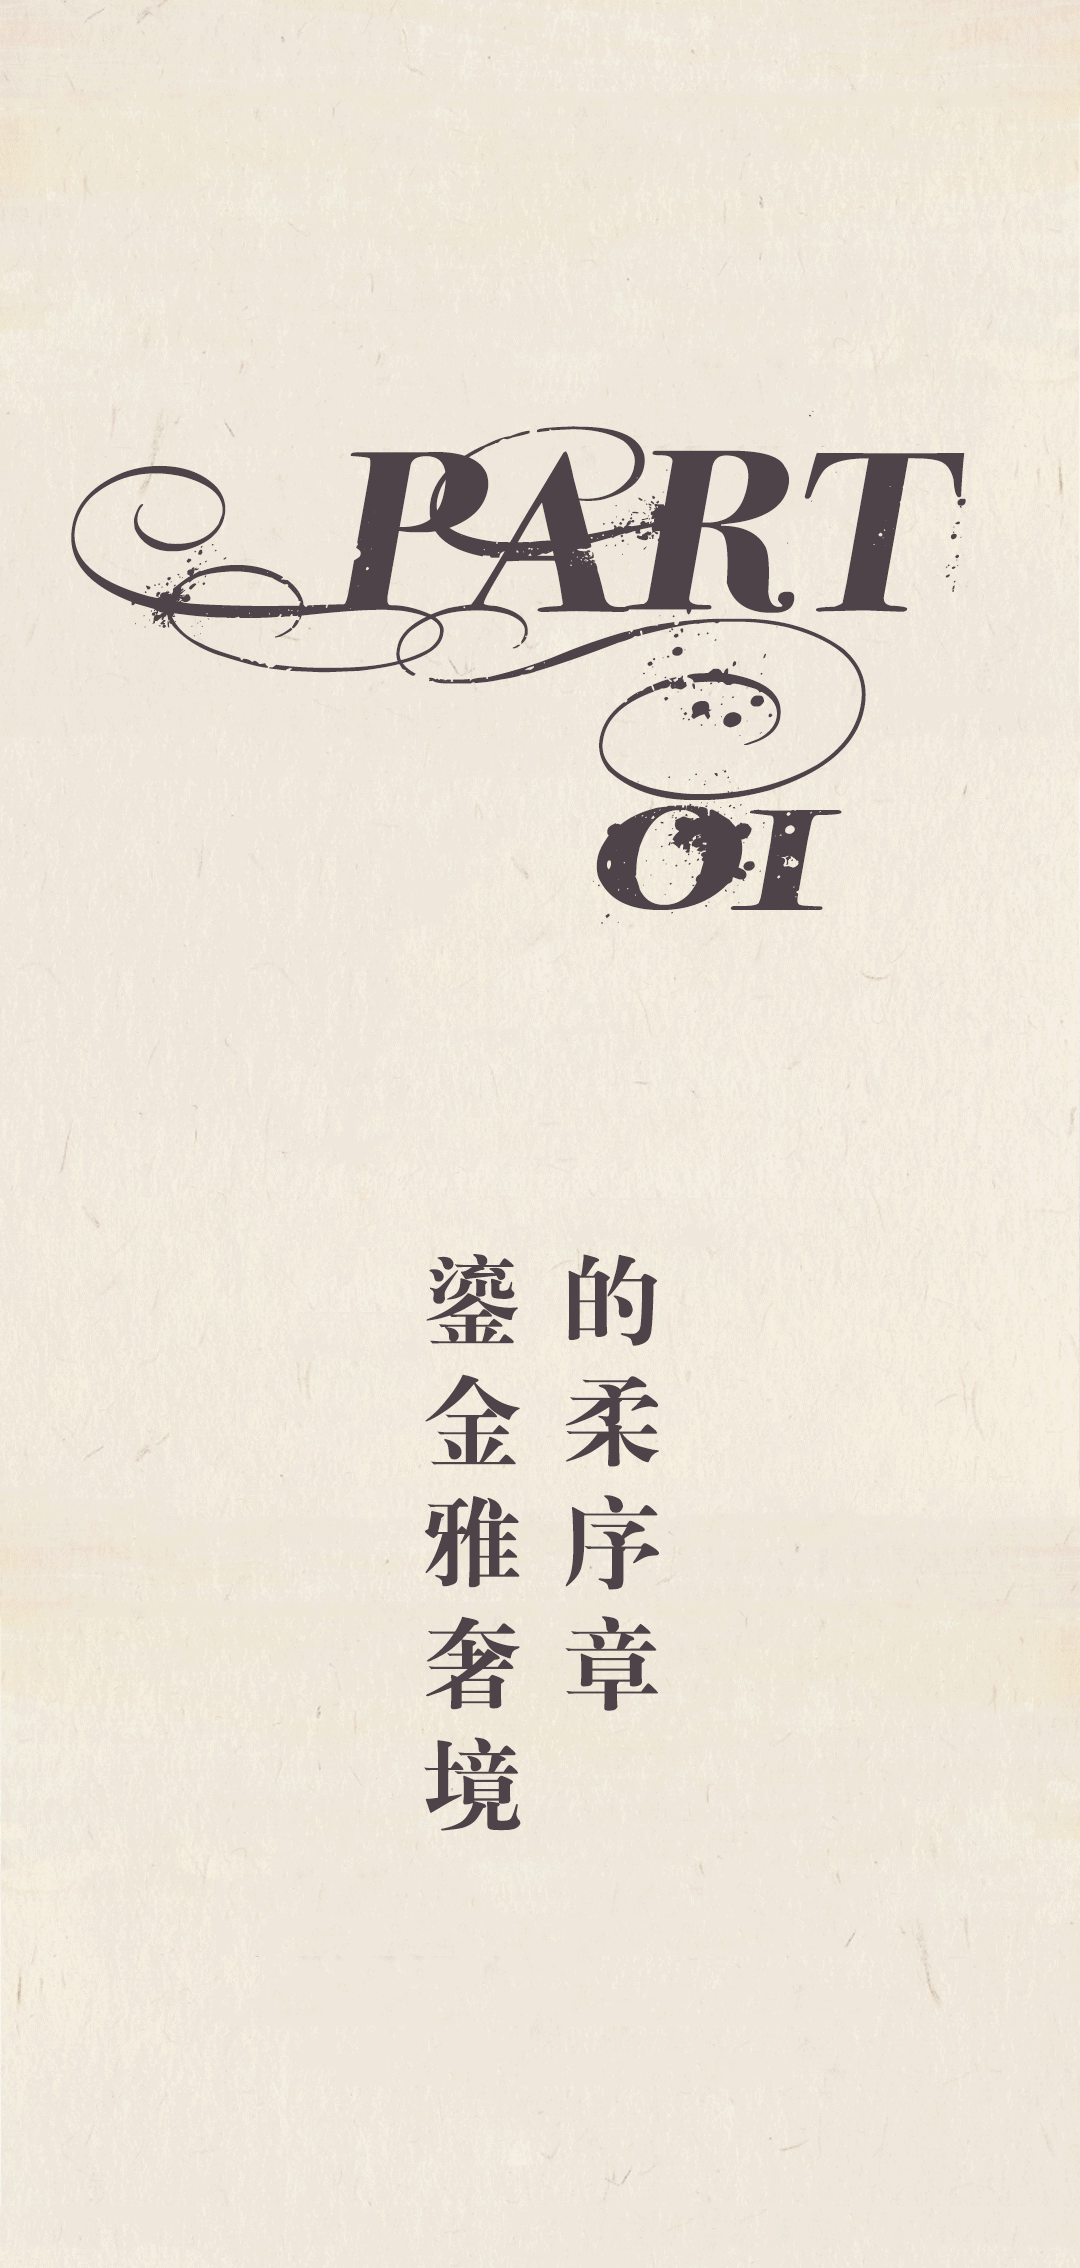 PART
01
鎏金雅奢境
的柔序章